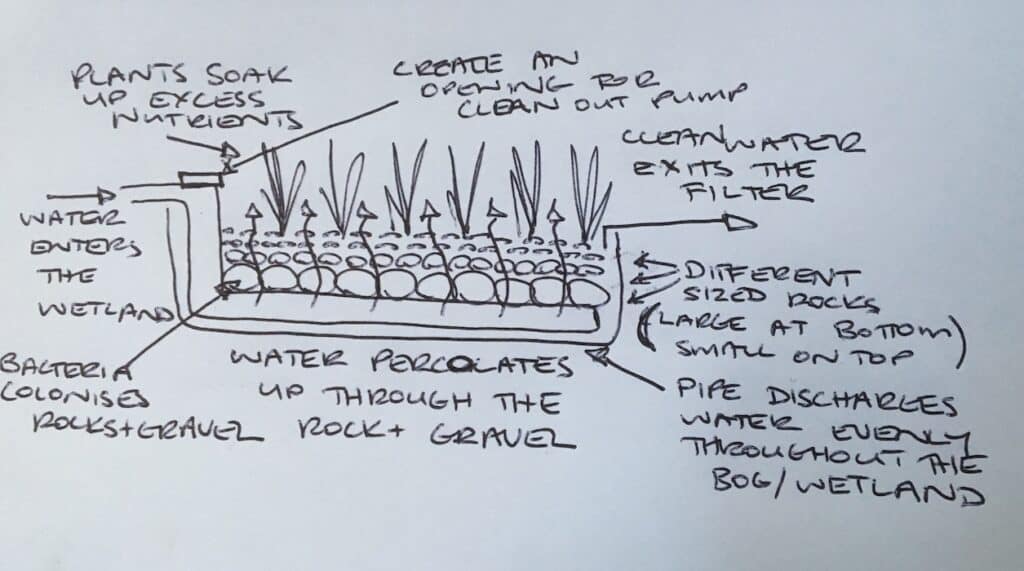 PLANTS SOAK
UP EXCESS
NUTRIENTS
CREATE AN
OPENING FOR
CLEAN OUT PUMP
CLEAN WATER
EXITS THE
FILTER
WATER
ENTERS
THE
WETLAND
DIFFERENT
SIZED ROCKS
(LARGE AT BOTTOM)
SMALL ON TOP
BACTERIA
COLONISES
ROCKS+GRAVEL
WATER PERCOLATES
UP THROUGH THE
ROCK+ GRAVEL
PIPE DISCHARGES
WATER EVENLY
THROUGHOUT THE
BOG/WETLAND